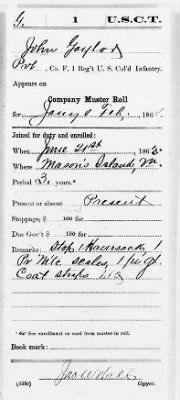 G. 1 U.S.C.T.
John Gaylord
Pvt., Co. F, 1 Reg't U.S. Col'd Infantry.
Appears on
Company Muster Roll
for Jany & Feb, 186
Joined for duty and enrolled:
When June 21st, 1863.
Where Mason's Island,
Period 3 years.*
Present or absent Present
Stoppage, $ 100 for
Due Gov't $ 100 for
Remarks: Stop 1 Haversack, 1
Pr Mtc scales, 1
Coat straps
* See enrollment on card from muster-in roll.
Book mark:
(358c) Copyist.